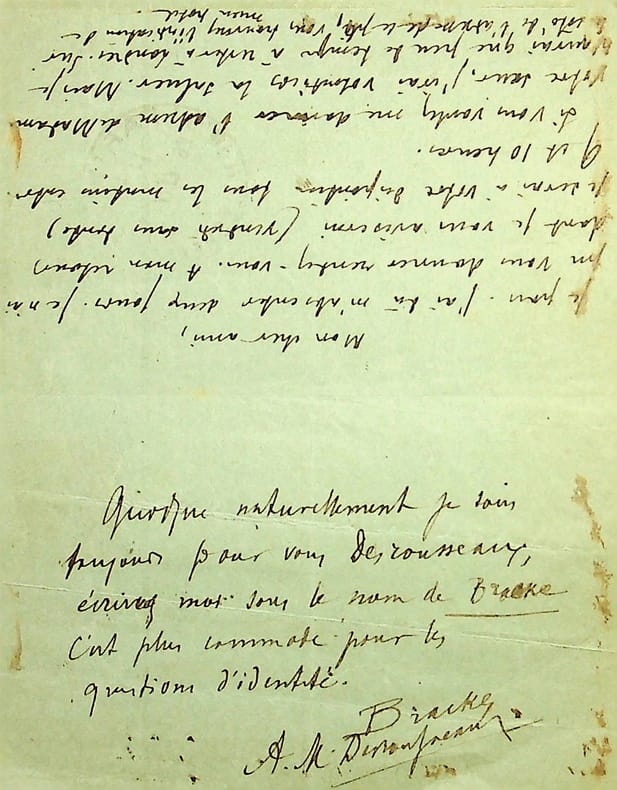 Mon cher ami,
je pars. J'ai dû m'absenter deux jours. Je n'ai
pu vous donner rendez-vous. A mon retour,
dont je vous aviserai (vendredi sans doute)
je serai à votre disposition tous les matins entre
9 et 10 heures.
Si vous voulez me donner l'adresse de Madame
votre sœur, j'irai volontiers la saluer. Mais je
n'aurai que peu de temps à rester à Londres. Sur
le côté de l'adresse de ce pli, vous trouverez l'indication de
mon hotel.
Quoique naturellement je sois
toujours pour vous Desrousseaux,
écrivez moi sous le nom de Bracke
C'est plus commode pour les
questions d'identité.
Bracke
A. M. Desrousseaux